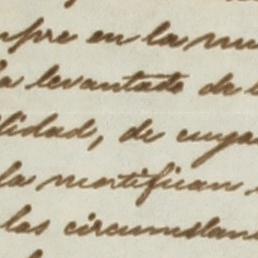 mpre en la mu
a levantado de l
lidad, de cuya
la mortifican
las circunstan